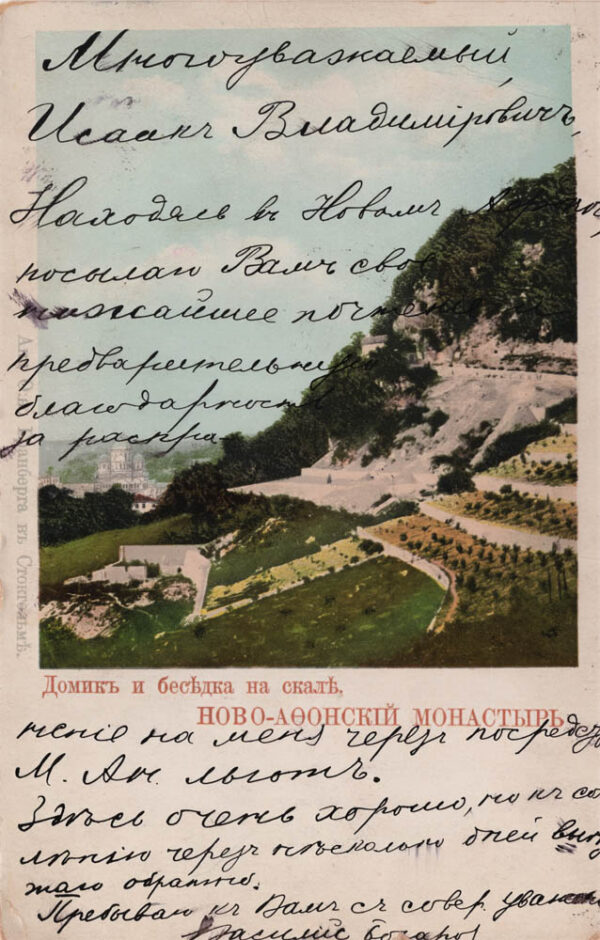 Многоуважаемый
Исаакъ Владиміровичъ,
Находясь въ Новомъ
посылаю Вамъ свое
нижайшее почтеніе и
предварительную
благодарность
за распра-
Гранберга въ Стокгольмѣ.
Домикъ и бесѣдка на скалѣ.
НОВО-АѲОНСКІЙ МОНАСТЫРЬ
неніе на меня черезъ посредст
М. Ан. льготъ.
Здѣсь очень хорошо, но къ со
лѣнію черезъ нѣсколько дней выѣз
жаю обратно.
Пребываю къ Вамъ съ совер. уважен
Василій